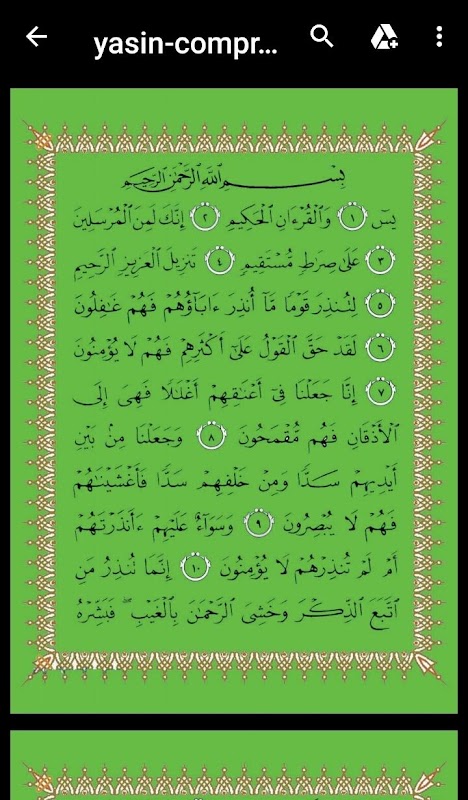 yasin-compr...
بِسْمِ ٱللَّهِ ٱلرَّحْمَٰنِ ٱلرَّحِيمِ
يسٓ ١ وَٱلْقُرْءَانِ ٱلْحَكِيمِ ٢ إِنَّكَ لَمِنَ ٱلْمُرْسَلِينَ
٣ عَلَىٰ صِرَٰطٍ مُّسْتَقِيمٍ ٤ تَنزِيلَ ٱلْعَزِيزِ ٱلرَّحِيمِ
٥ لِتُنذِرَ قَوْمًا مَّآ أُنذِرَ ءَابَآؤُهُمْ فَهُمْ غَٰفِلُونَ
٦ لَقَدْ حَقَّ ٱلْقَوْلُ عَلَىٰٓ أَكْثَرِهِمْ فَهُمْ لَا يُؤْمِنُونَ
٧ إِنَّا جَعَلْنَا فِىٓ أَعْنَٰقِهِمْ أَغْلَٰلًا فَهِىَ إِلَى
ٱلْأَذْقَانِ فَهُم مُّقْمَحُونَ ٨ وَجَعَلْنَا مِنۢ بَيْنِ
أَيْدِيهِمْ سَدًّا وَمِنْ خَلْفِهِمْ سَدًّا فَأَغْشَيْنَٰهُمْ
فَهُمْ لَا يُبْصِرُونَ ٩ وَسَوَآءٌ عَلَيْهِمْ ءَأَنذَرْتَهُمْ
أَمْ لَمْ تُنذِرْهُمْ لَا يُؤْمِنُونَ ١٠ إِنَّمَا تُنذِرُ مَنِ
ٱتَّبَعَ ٱلذِّكْرَ وَخَشِىَ ٱلرَّحْمَٰنَ بِٱلْغَيْبِ ۖ فَبَشِّرْهُ